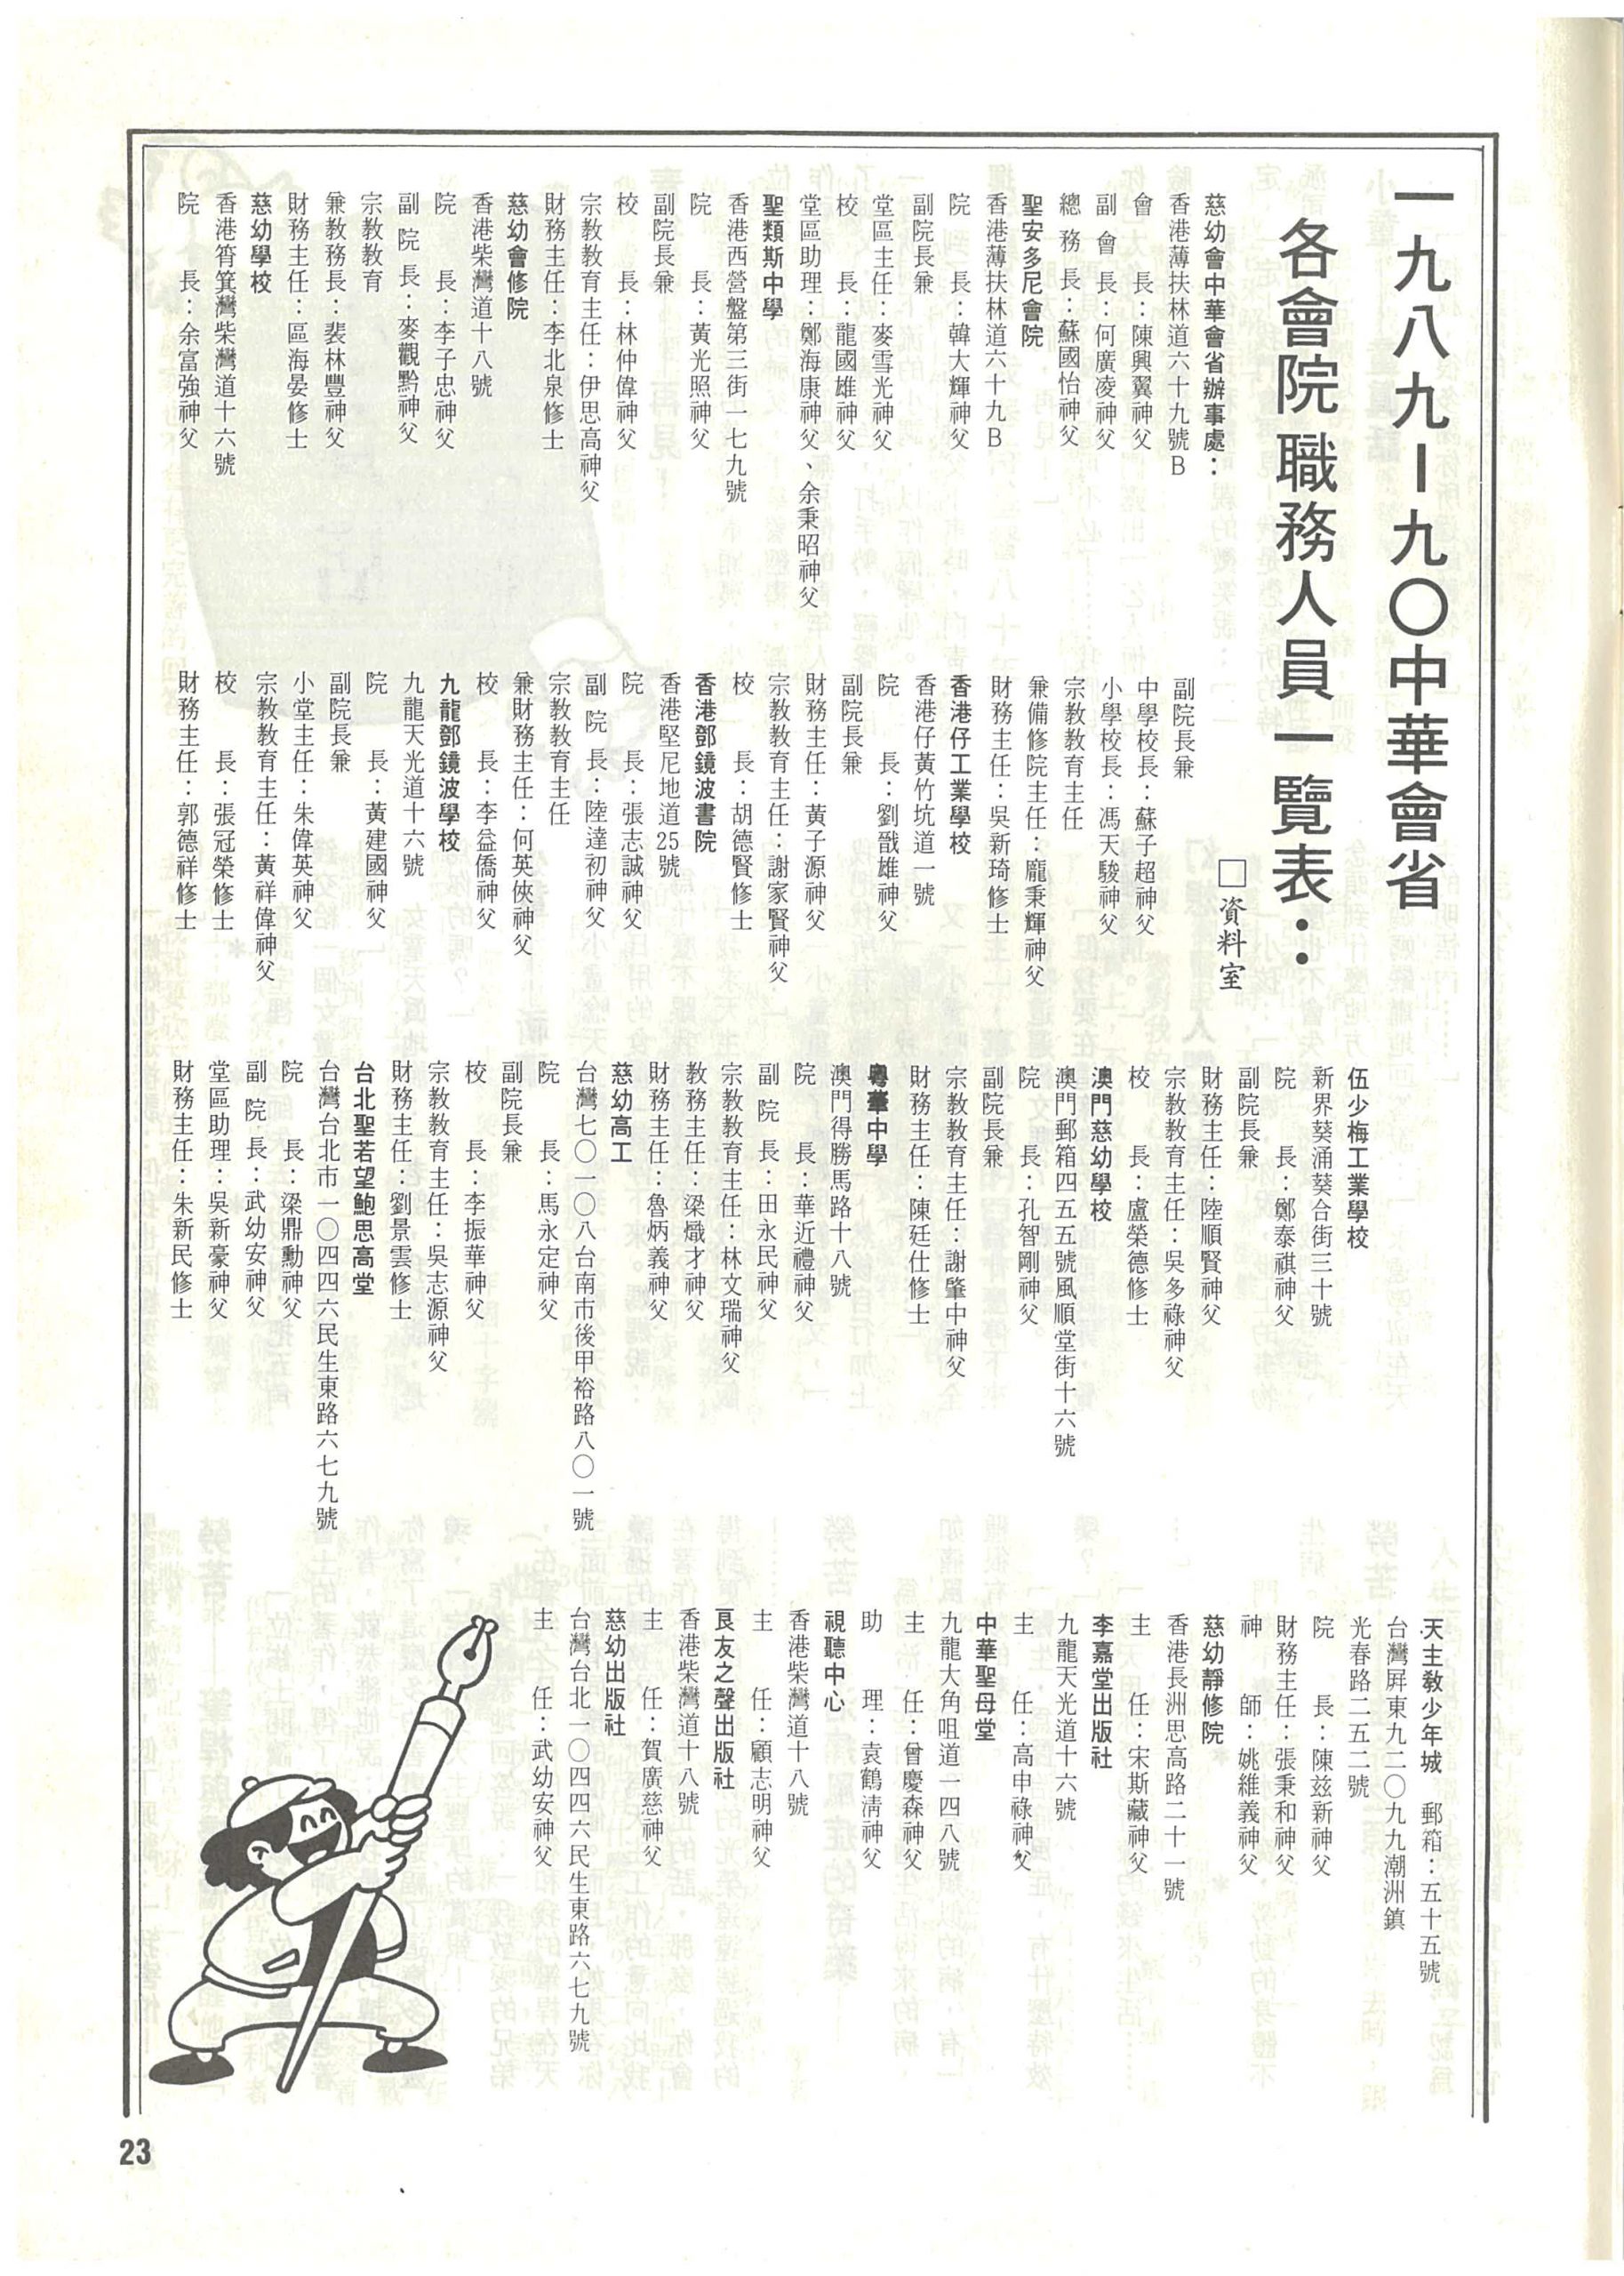 一九八九－九〇中華會省
各會院職務人員一覽表：
□資料室
慈幼會中華會省辦事處：
香港薄扶林道六十九號B
會　　長：陳興翼神父
副會　長：何廣凌神父
總務　長：蘇國怡神父
聖安多尼會院
香港薄扶林道六十九B
院　　長：韓大輝神父
副院長兼
堂區主任：麥雪光神父
校　　長：龍國雄神父
堂區助理：鄭海康神父、余秉昭神父
聖類斯中學
香港西營盤第三街一七九號
院　　長：黃光照神父
副院長兼
校　　長：林仲偉神父
宗教教育主任：伊思高神父
財務主任：李北泉修士
慈幼會修院
香港柴灣道十八號
院　　長：李子忠神父
副院　長：麥觀黔神父
宗教教育
兼教務長：裴林豐神父
財務主任：區海晏修士
慈幼學校
香港筲箕灣柴灣道十六號
院　　長：余富強神父
副院長兼
中學校長：蘇子超神父
小學校長：馮天駿神父
宗教教育主任
兼備修院主任：龐秉輝神父
財務主任：吳新琦修士
香港仔工業學校
香港仔黃竹坑道一號
院　　長：劉戩雄神父
副院長兼
財務主任：黃子源神父
宗教教育主任：謝家賢神父
校　　長：胡德賢修士
香港鄧鏡波書院
香港堅尼地道25號
院　　長：張志誠神父
副院　長：陸達初神父
宗教教育主任
兼財務主任：何英俠神父
校　　長：李益僑神父
九龍鄧鏡波學校
九龍天光道十六號
院　　長：黃建國神父
副院長兼
小堂主任：朱偉英神父
宗教教育主任：黃祥偉神父
校　　長：張冠榮修士
財務主任：郭德祥修士
伍少梅工業學校
新界葵涌葵合街三十號
院　　長：鄭泰祺神父
副院長兼
財務主任：陸順賢神父
宗教教育主任：吳多祿神父
校　　長：盧榮德修士
澳門慈幼學校
澳門郵箱四五五號風順堂街十六號
院　　長：孔智剛神父
副院長兼
宗教教育主任：謝肇中神父
財務主任：陳廷仕修士
粵華中學
澳門得勝馬路十八號
院　　長：華近禮神父
副院　長：田永民神父
宗教教育主任：林文瑞神父
教務主任：梁熾才神父
財務主任：魯炳義神父
慈幼高工
台灣七〇一〇八台南市後甲裕路八〇一號
院　　長：馬永定神父
副院長兼
校　　長：李振華神父
宗教教育主任：吳志源神父
財務主任：劉景雲修士
台北聖若望鮑思高堂
台灣台北市一〇四四六民生東路六七九號
院　　長：梁鼎勳神父
副院　長：武幼安神父
堂區助理：吳新豪神父
財務主任：朱新民修士
天主教少年城　郵箱：五十五號
台灣屏東九二〇九九潮洲鎮
光春路二五二號
院　　長：陳兹新神父
財務主任：張秉和神父
神　　師：姚維義神父
慈幼靜修院
香港長洲思高路二十一號
主　　任：宋斯藏神父
李嘉堂出版社
九龍天光道十六號
主　　任：高申祿神父
中華聖母堂
九龍大角咀道一四八號
主　　任：曾慶森神父
助　　理：袁鶴清神父
視聽中心
香港柴灣道十八號
主　　任：顧志明神父
良友之聲出版社
香港柴灣道十八號
主　　任：賀廣慈神父
慈幼出版社
台灣台北一〇四四六民生東路六七九號
主　　任：武幼安神父
23